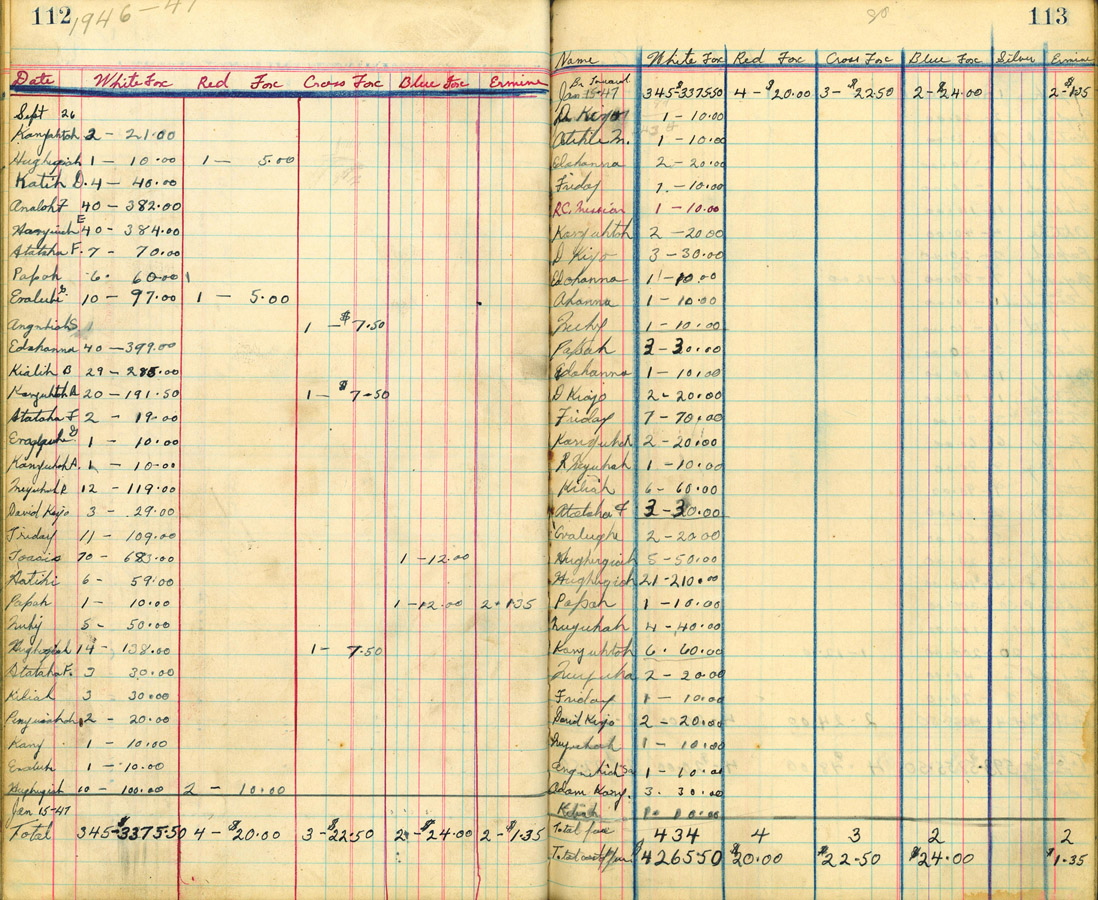 112 1946-47
Date White Fox Red Fox Cross Fox Blue Fox Ermine
Sept 26
Kanyuhtoh 2 - 21.00
Hughugiah 1 - 10.00 1 - 5.00
Katik D. 4 - 40.00
40 - 382.00
40 - 384.00
Atatsha F. 7 - 70.00
Papah 6. 60.00
10 - 97.00 1 - 5.00
1 - $7.50
Edahanna 40 - 399.00
Kialik B 29 - 285.00
Kanyuhtoh A 20 - 191.50 1 - $7.50
Atatsha F 2 - 19.00
1 - 10.00
Kanyuhtoh A. 1 - 10.00
12 - 119.00
David Kiyo 3 - 29.00
Friday 11 - 109.00
70 - 683.00 1 - 12.00
Hatiki 6 - 59.00
Papah 1 - 10.00 1 - 12.00 2 - 1.35
5 - 50.00
Hughugiah 14 - 138.00 1 - 7.50
Atatsha F. 3 30.00
Kiliah 3 30.00
2 - 20.00
Kany 1 - 10.00
1 - 10.00
Hughugiah 10 - 100.00 2 - 10.00
Jan 15-47
Total 345 - $3375.50 4 - $20.00 3 - $22.50 2 - $24.00 2 - $1.35
113
Name White Fox Red Fox Cross Fox Blue Fox Silver Ermine
Br Forward
Jan 15-47 345 - $3375.50 4 - $20.00 3 - $22.50 2 - $24.00 2 - $1.35
D. Kiyo 1 - 10.00
1 - 10.00
Edahanna 2 - 20.00
Friday 1 - 10.00
R.C. Mission 1 - 10.00
Kanyuhtoh 2 - 20.00
D Kiyo 3 - 30.00
Edahanna 1 - 10.00
Ahanna 1 - 10.00
1 - 10.00
Papah 3 - 30.00
Edahanna 1 - 10.00
D Kiojo 2 - 20.00
Friday 7 - 70.00
2 - 20.00
1 - 10.00
Kiliah 6 - 60.00
Atatsha F 3 - 30.00
Evalughe 2 - 20.00
Hughugiah 5 - 50.00
Hughugiah 21 - 210.00
Papah 1 - 10.00
4 - 40.00
Kanyuhtoh 6. 60.00
2 - 20.00
Friday 1 - 10.00
David Kiyo 2 - 20.00
1 - 10.00
1 - 10.00
Adam Kany. 3. 30.00
Kiliah 1. 10.00
Total fox 434 4 3 2 2
$4265.50 $20.00 $22.50 $24.00 $1.35